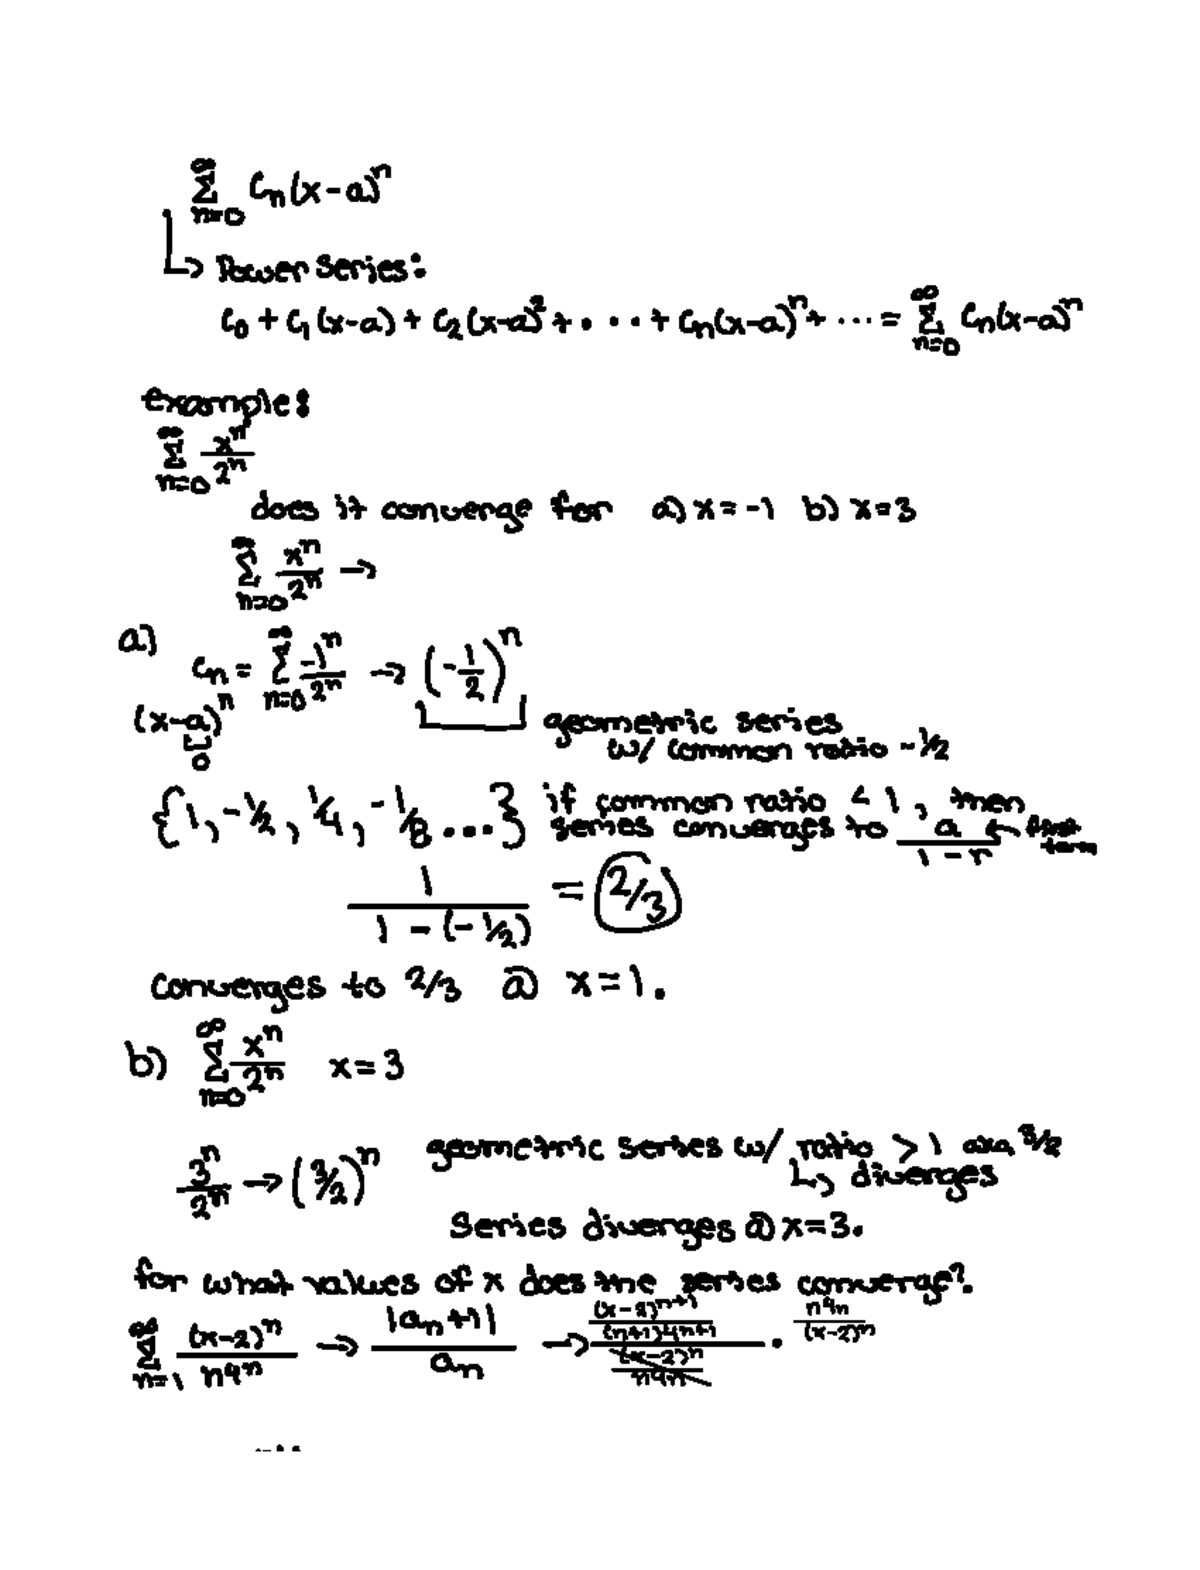 ∞
Σ Cn(x-a)^n
n=0
↳ Power Series:
C0 + C1(x-a) + C2(x-a)^2 + · · · + Cn(x-a)^n + ··· = ∞Σn=0 Cn(x-a)^n
example:
∞Σn=0 x^n/2^n
does it converge for a) x = -1 b) x = 3
∞Σn=0 x^n/2^n →
a) Cn = ∞Σn=0 -1^n/2^n → (-1/2)^n
(x-a)^n geometric series
0 w/ common ratio -1/2
{1, -1/2, 1/4, -1/8 ...} if common ratio < 1, then
series converges to a/(1-r) ← first term
1/(1-(-1/2)) = 2/3
converges to 2/3 @ x=1.
b) ∞Σn=0 x^n/2^n x = 3
3^n/2^n → (3/2)^n geometric series w/ ratio > 1 aka 3/2
↳ diverges
Series diverges @ x=3.
for what values of x does the series converge?
∞Σn=1 (x-2)^n/n4^n → |an+1|/an → (x-2)^n+1/(n+1)4^n+1 / (x-2)^n/n4^n · n4^n/(x-2)^n